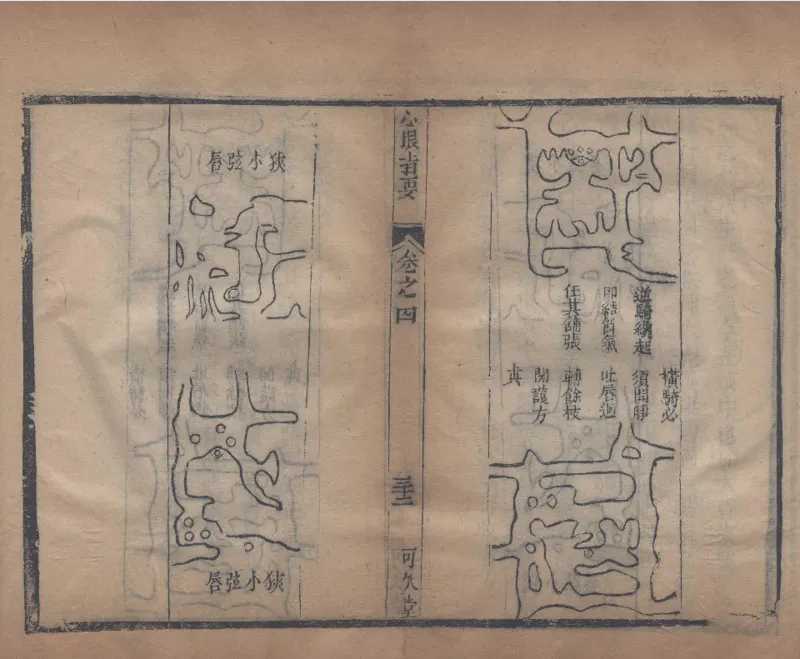 騎纔起
即結節氣
任其鋪張
橫騎必
須開睜
吐唇迴
轉餘枝
関護方
真
心眼指要
卷之四
三十二
可久堂
狹小弦唇
狹小弦唇